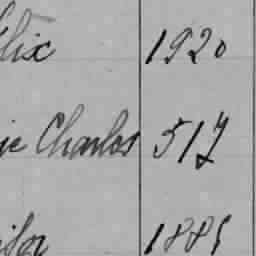 lix 1920
ie Charles 517
1885